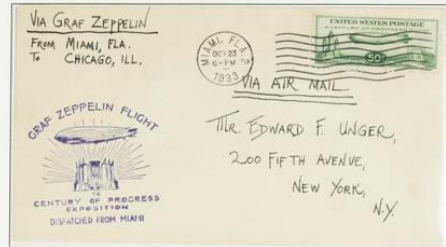 VIA GRAF ZEPPELIN
FROM MIAMI, FLA.
TO CHICAGO, ILL.
MIAMI, FLA.
OCT 23
6-PM
1933
UNITED STATES POSTAGE
A CENTURY OF PROGRESS FLIGHT
50c
VIA AIR MAIL
GRAF ZEPPELIN FLIGHT
TO
CENTURY OF PROGRESS
EXPOSITION
DISPATCHED FROM MIAMI
MR. EDWARD F. UNGER,
200 FIFTH AVENUE,
NEW YORK,
N.Y.